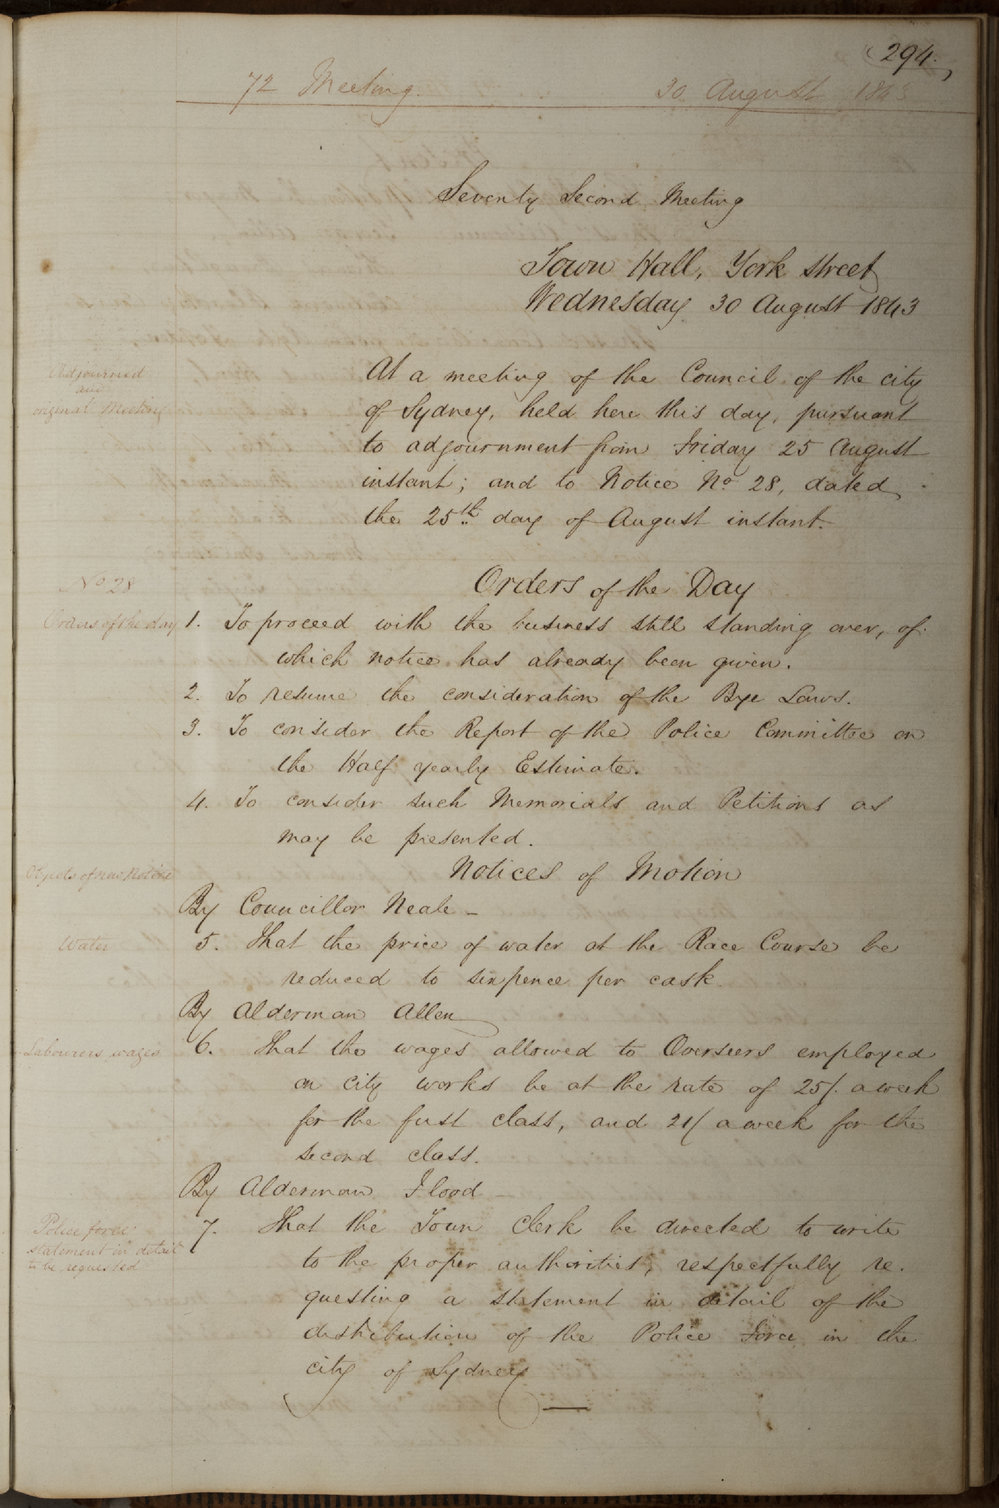 294.
72 Meeting. 30 August 1843
Seventy Second Meeting
Town Hall, York street
Wednesday 30 August 1843
Adjourned
and
original Meeting
At a meeting of the Council of the city
of Sydney, held here this day, pursuant
to adjournment from Friday 25 August
instant; and to Notice No 28, dated
the 25th day of August instant.
No 28
Orders of the Day
Orders of the day
1. To proceed with the business still standing over, of
which notice has already been given.
2. To resume the consideration of the Bye Laws.
3. To consider the Report of the Police Committee on
the Half yearly Estimate.
4. To consider such Memorials and Petitions as
may be presented.
Notices of Motion
Objects of new Notice
By Councillor Neale -
Water
5. That the price of water at the Race Course be
reduced to sixpence per cask.
By Alderman Allen
Labourers wages
6. That the wages allowed to Overseers employed
on city works be at the rate of 25/. a week
for the first class, and 21/ a week for the
second class.
By Alderman Flood
Police force
statement in detail
to be requested
7. That the Town Clerk be directed to write
to the proper authorities, respectfully re-
questing a statement in detail of the
distribution of the Police Force in the
city of Sydney